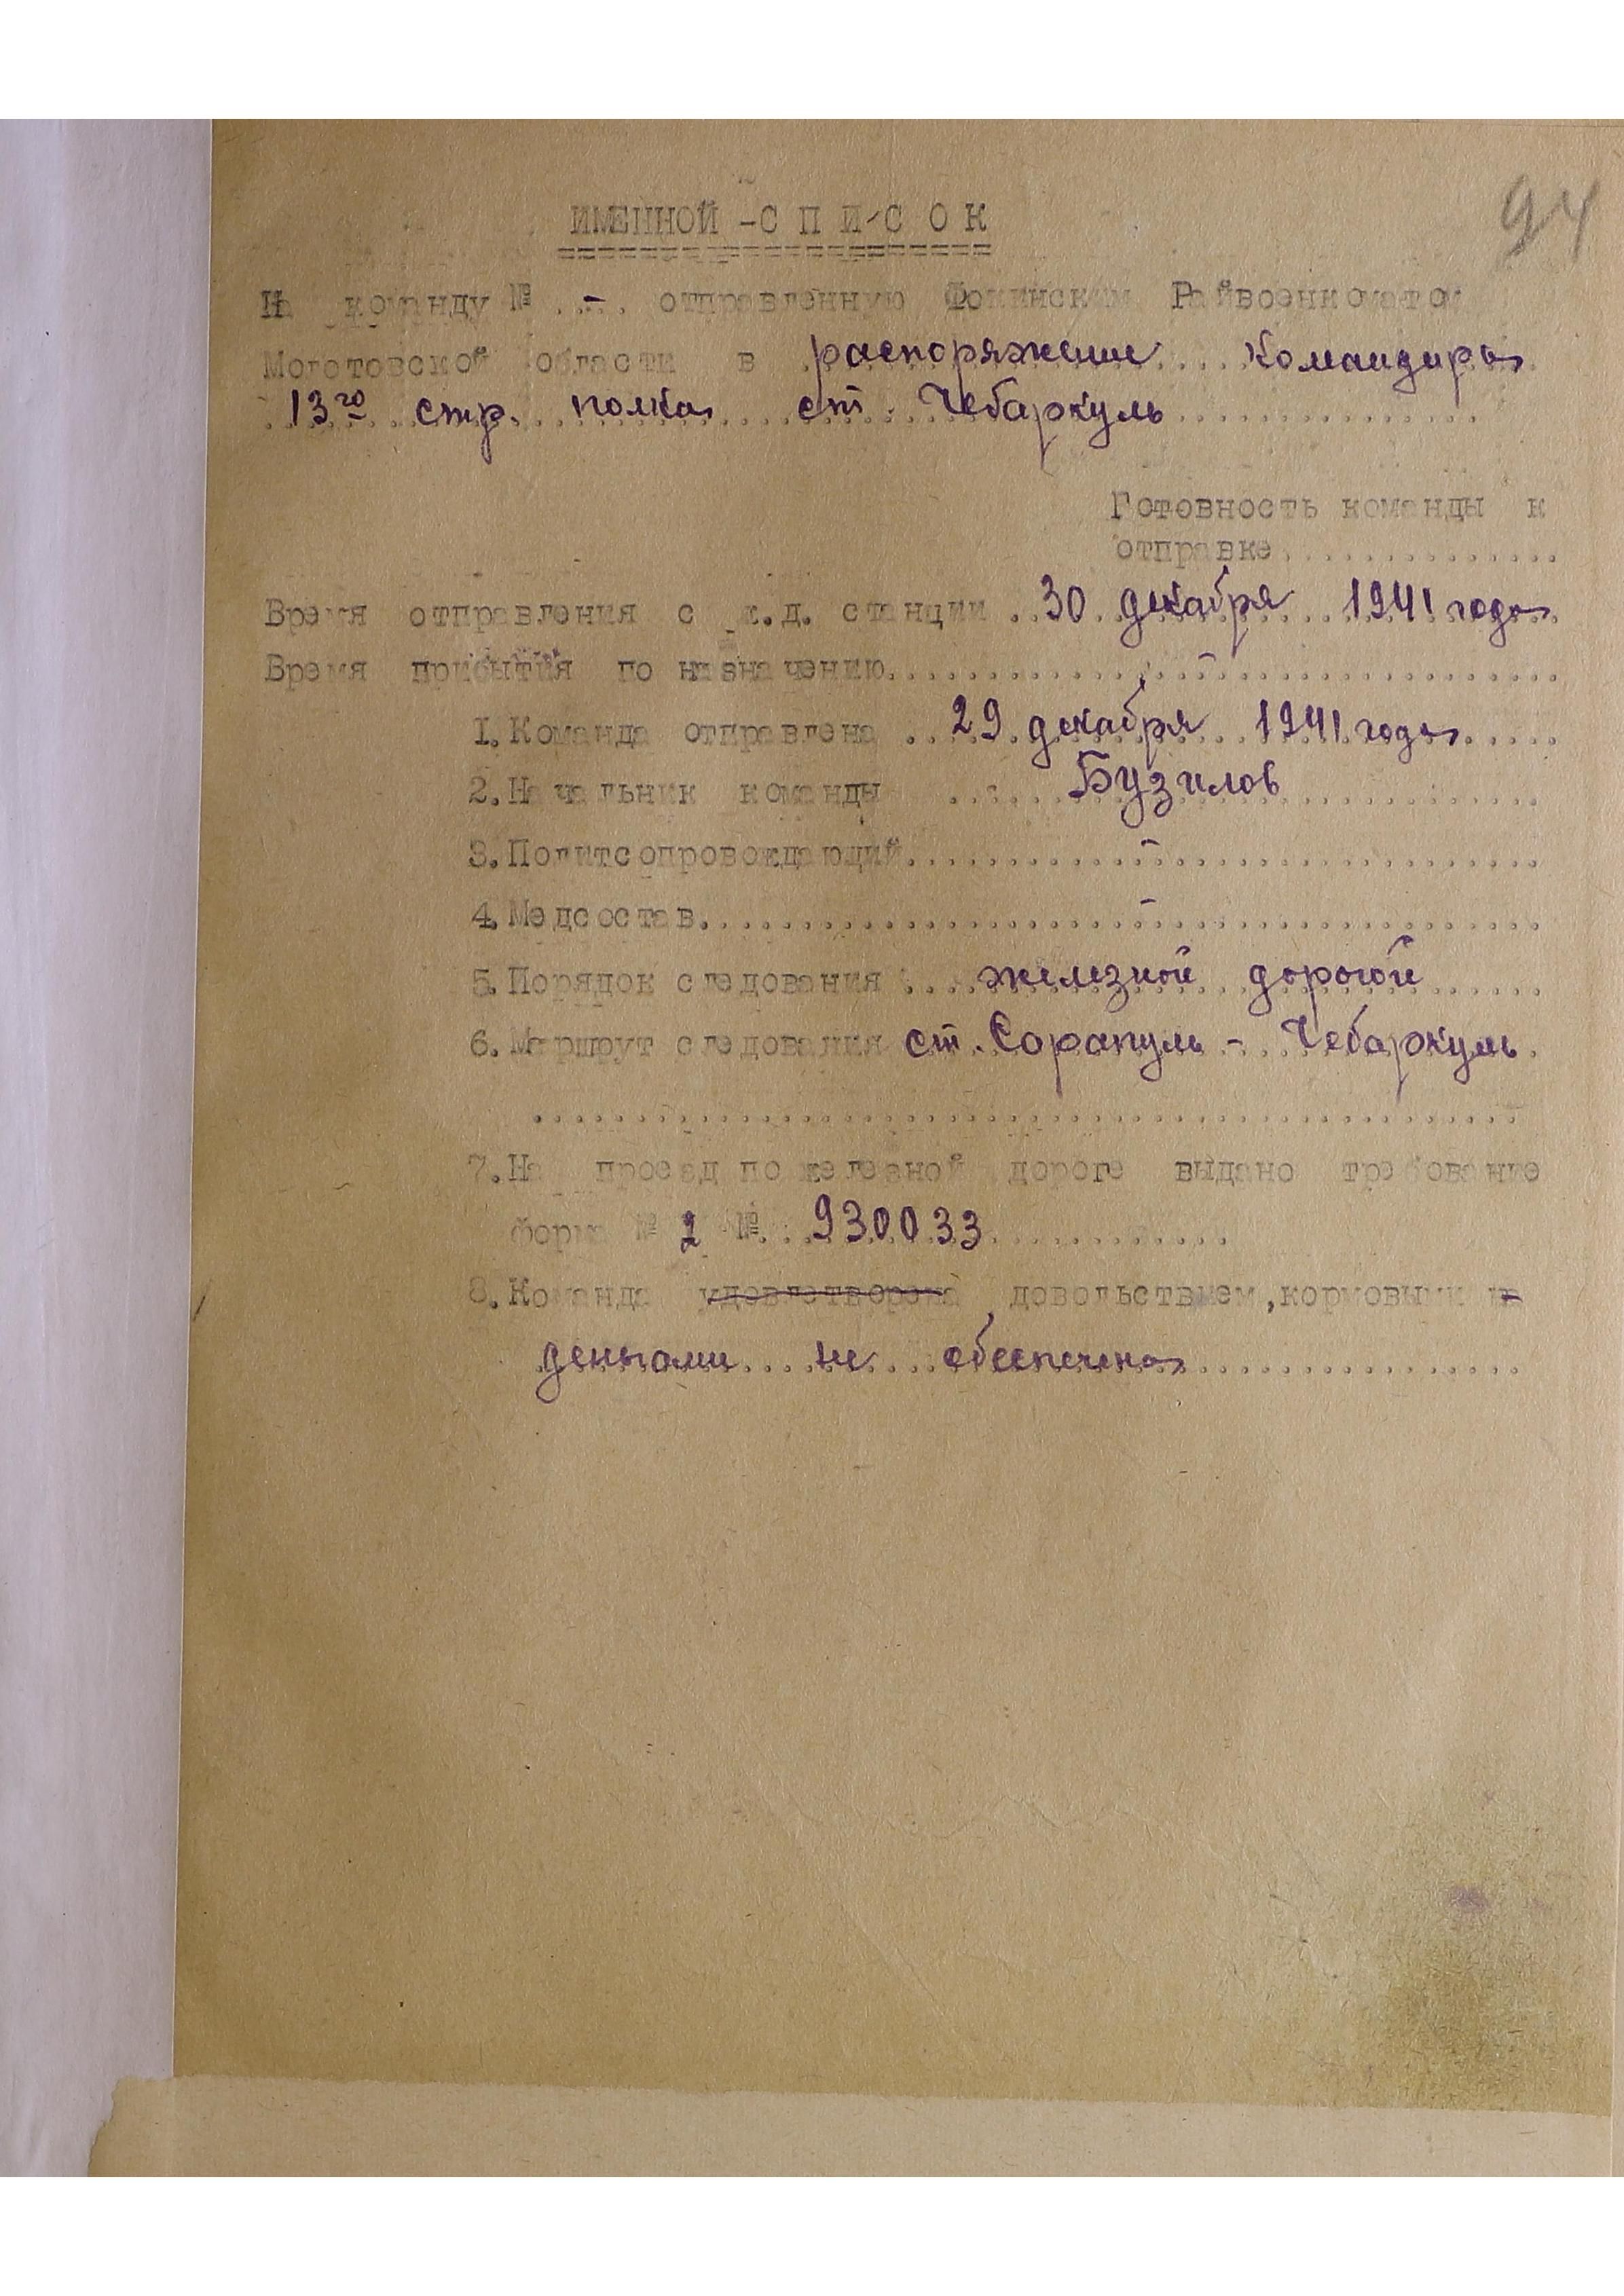 94
ИМЕННОЙ - С П И С О К
На команду № . - . отправленную Фокинским Райвоенкоматом
Молотовской области в распоряжение командира
13го стр. полка ст. Чебаркуль
Готовность команды к
отправке..............
Время отправления с ж.д. станции 30 декабря 1941 года
Время прибытия по назначению.......... - ..........
1. Команда отправлена 29 декабря 1941 года
2. Начальник команды Бузилов
3. Политсопровождающий.......... - ..........
4. Медсостав.......... - ..........
5. Порядок следования железной дорогой
6. Маршрут следования ст. Сарапуль - Чебаркуль.
7. На проезд по железной дороге выдано требование
форм № 2 № 930033
8. Команда удовлетворена довольствием, кормовыми и
деньгами не обеспечена